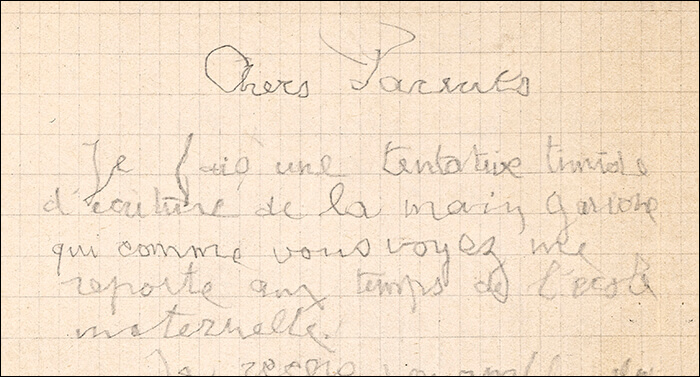 Chers Parents
Je fais une tentative timide
d'écriture de la main gauche
qui comme vous voyez me
reporte aux temps de l'école
maternelle.
Je